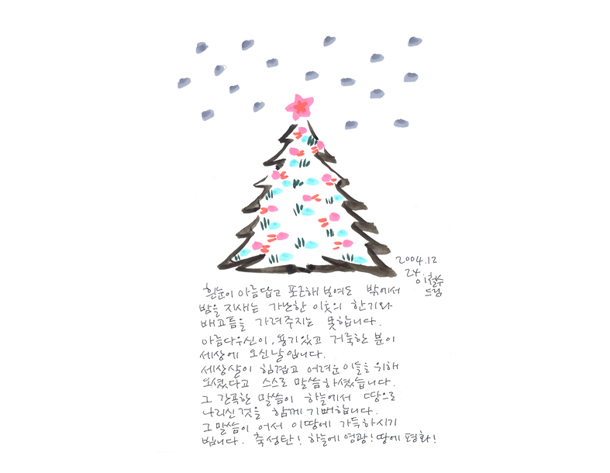 2004.12
24 이철수
드림
흰눈이 아름답고 포근해 보여도 밖에서
밤을 지새는 가난한 이웃의 한기와
배고픔을 가려주지는 못합니다.
아름다우신이, 용기있고 거룩한 분이
세상에 오신날입니다.
세상살이 힘겹고 어려운 이들을 위해
오셨다고 스스로 말씀하셨습니다.
그 간곡한 말씀이 하늘에서 땅으로
나리신것을 함께 기뻐합니다.
그 말씀이 어서 이땅에 가득하시기
빕니다. 축성탄! 하늘에 영광! 땅에 평화!